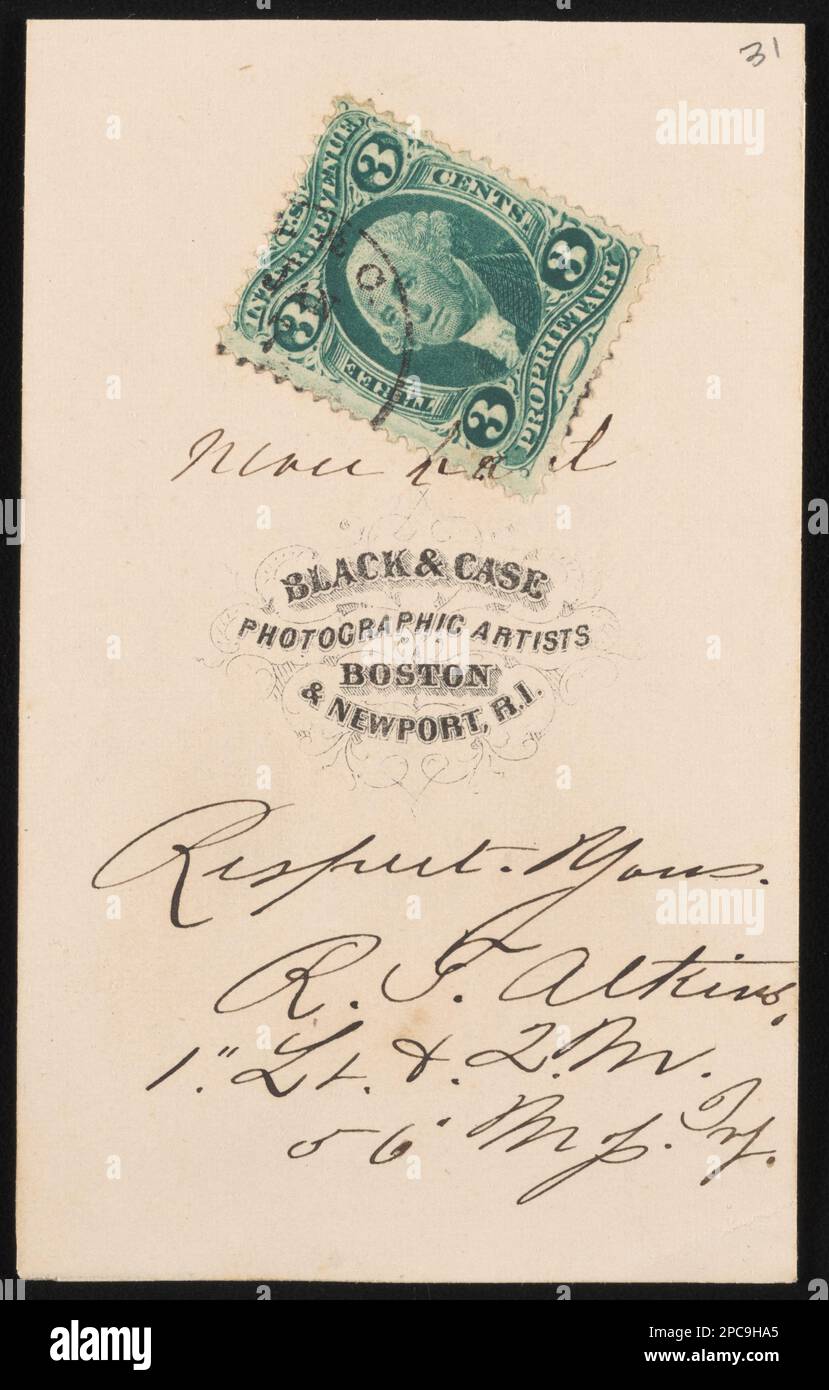 31
U.S.
INTER. REVENUE
3
CENTS
3
3
THREE
3
PROPRIETARY
BLACK & CASE
PHOTOGRAPHIC ARTISTS
BOSTON
& NEWPORT, R.I.
Respect. Yours.
R. F. Atkins,
1" Lt. & Q.M.
56" Mass. Inf.
alamy
Image ID: 2PC9HA5
www.alamy.com